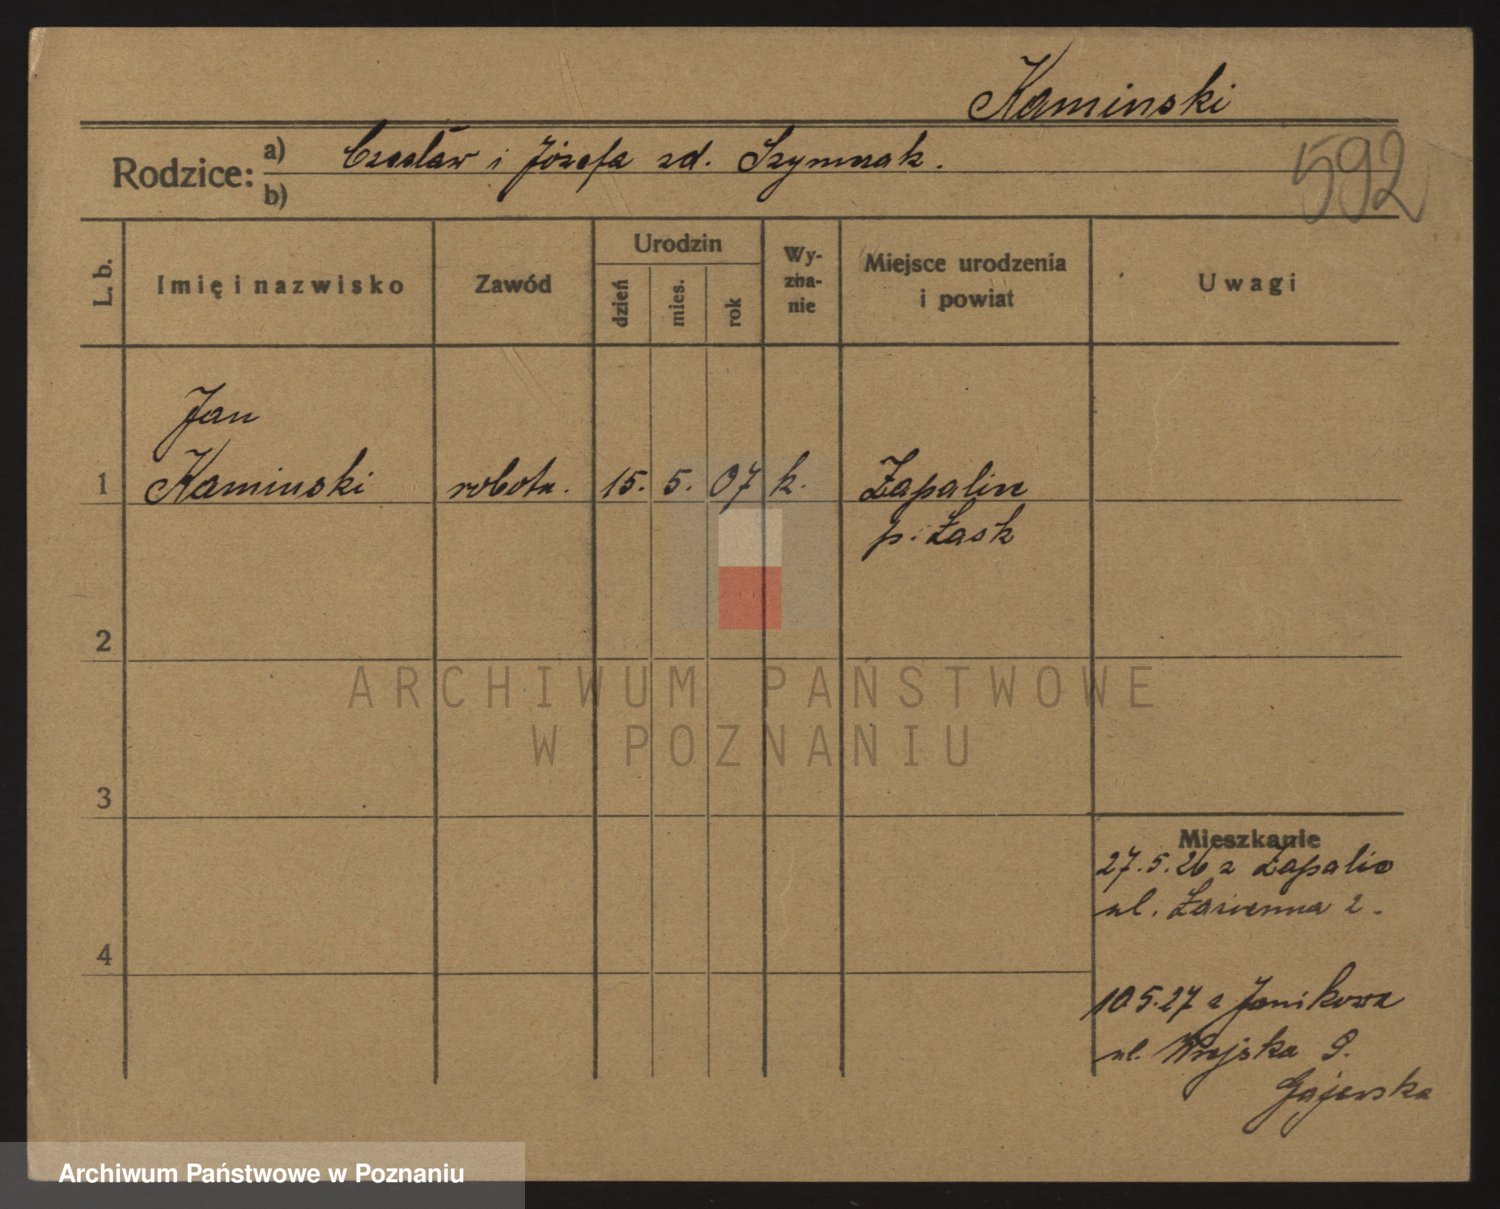 Kaminski
Rodzice: a) Czesław i Józefa zd. Szymczak.
b)
592
L. b.
Imię i nazwisko
Zawód
Urodzin
dzień
mies.
rok
Wy-
zna-
nie
Miejsce urodzenia
i powiat
Uwagi
Jan
1 Kaminski robotn. 15. 5. 07 k. Zapalin
p. Łask
2
ARCHIWUM PAŃSTWOWE
W POZNANIU
3
4
Mieszkanie
27.5.26 z
ul. 2.
10.5.27 z Janikowa
ul. Wiejska 9.
Gajewska
Archiwum Państwowe w Poznaniu